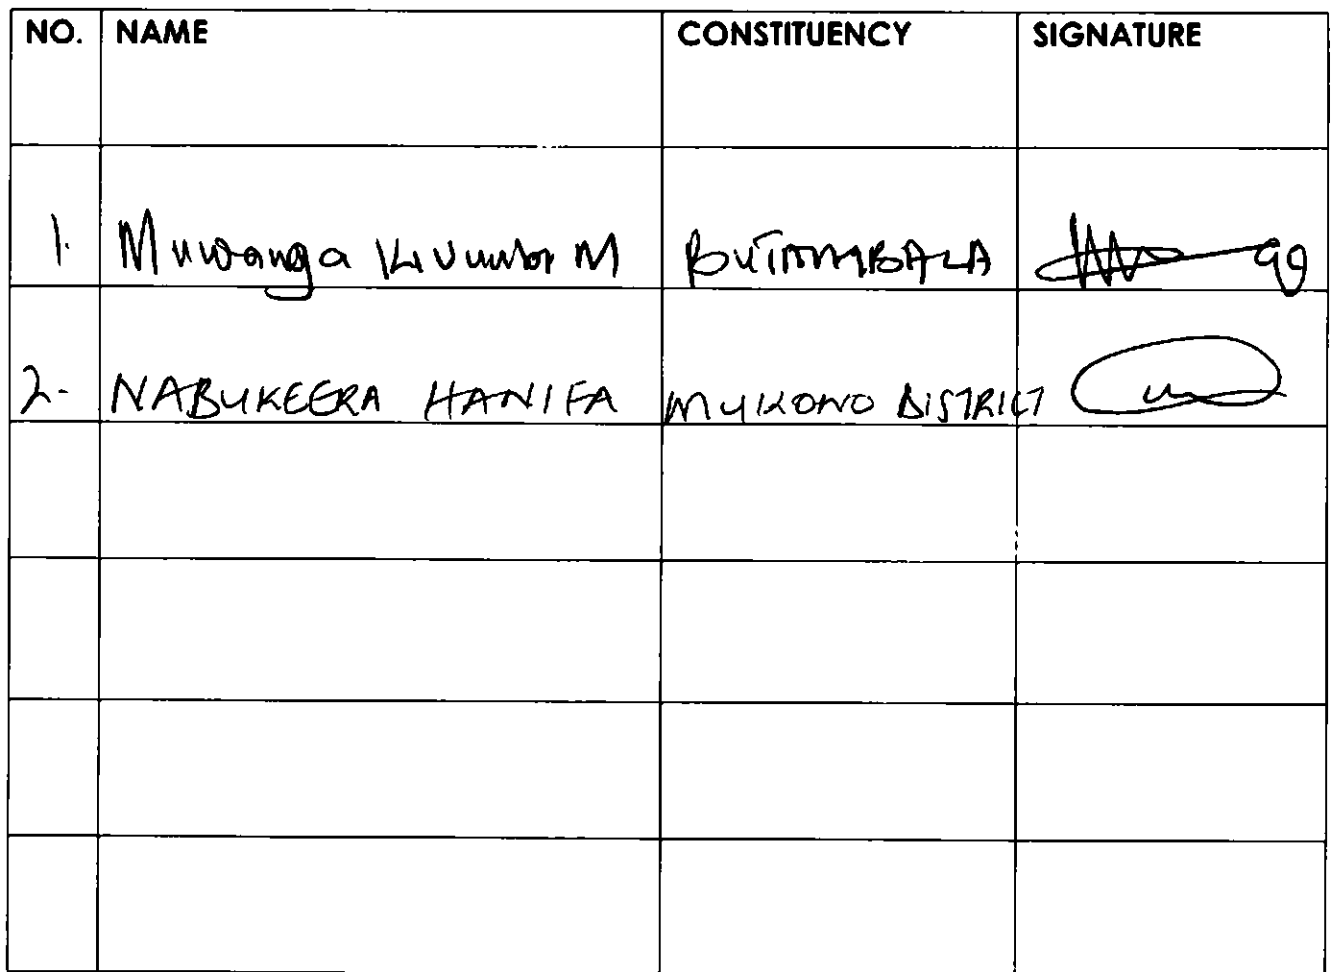 NO. NAME CONSTITUENCY SIGNATURE
1. Muwanga Kivumbi M BUTAMBALA
2- NABUKEERA HANIFA MUKONO DISTRICT